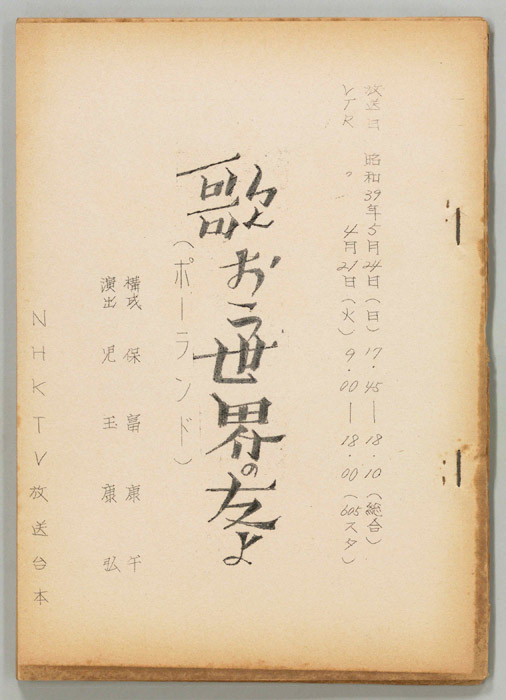 放送日 昭和39年5月24日(日) 17.45—18.10(総合)
VTR 〃 4月21日(火) 9.00—18.00(605スタ)
歌おう世界の友よ
(ポーランド)
構成 保富康午
演出 児玉康弘
NHKTV放送台本